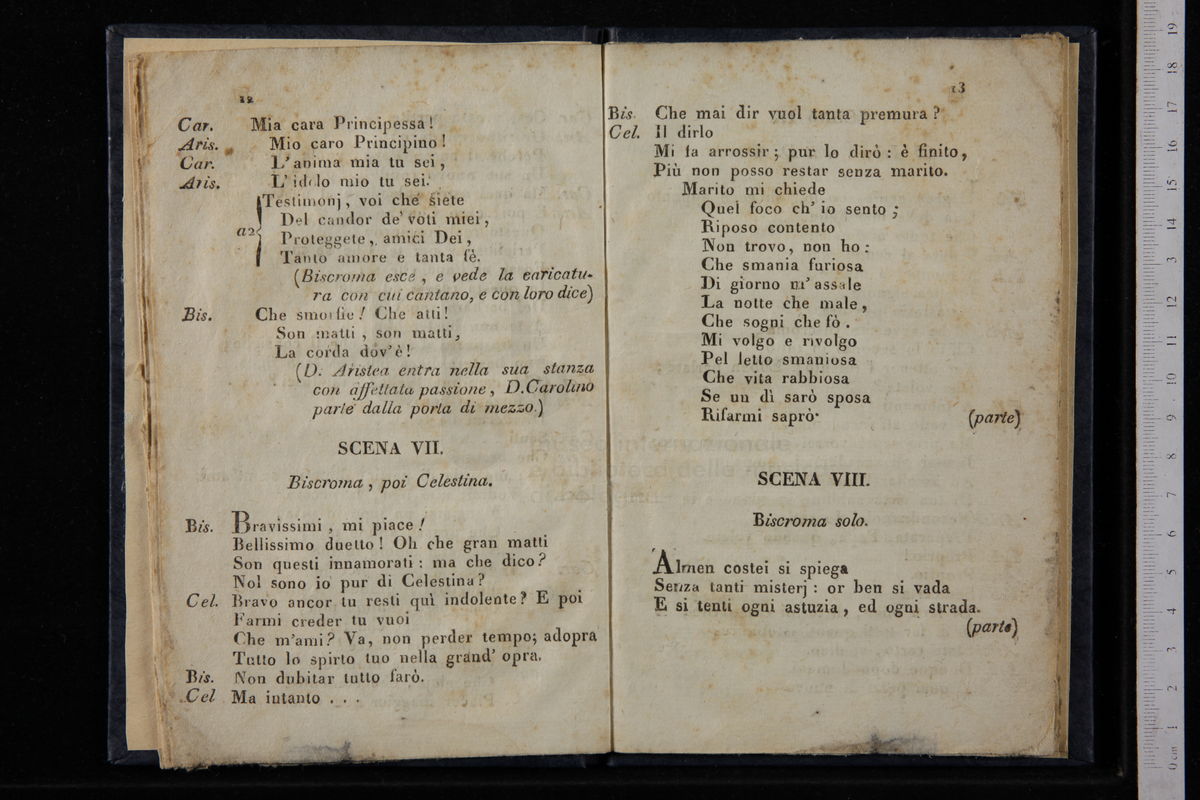 12
Car. Mia cara Principessa!
Aris. Mio caro Principino!
Car. L'anima mia tu sei,
Aris. L'idolo mio tu sei.
Testimonj, voi che siete
Del candor de' voti miei,
a2 Proteggete, amici Dei,
Tanto amore e tanta fè.
(Biscroma esce, e vede la caricatu-
ra con cui cantano, e con loro dice)
Bis. Che smorfie! Che atti!
Son matti, son matti,
La corda dov'è!
(D. Aristea entra nella sua stanza
con affettata passione, D. Carolino
parte dalla porta di mezzo.)
SCENA VII.
Biscroma, poi Celestina.
Bis. Bravissimi, mi piace!
Bellissimo duetto! Oh che gran matti
Son questi innamorati: ma che dico?
Nol sono io pur di Celestina?
Cel. Bravo ancor tu resti quì indolente? E poi
Farmi creder tu vuoi
Che m'ami? Va, non perder tempo; adopra
Tutto lo spirto tuo nella grand' opra.
Bis. Non dubitar tutto farò.
Cel Ma intanto . . .
13
Bis. Che mai dir vuol tanta premura?
Cel. Il dirlo
Mi fa arrossir; pur lo dirò: è finito,
Più non posso restar senza marito.
Marito mi chiede
Quel foco ch' io sento;
Riposo contento
Non trovo, non ho:
Che smania furiosa
Di giorno m' assale
La notte che male,
Che sogni che fò.
Mi volgo e rivolgo
Pel letto smaniosa
Che vita rabbiosa
Se un dì sarò sposa
Rifarmi saprò. (parte)
SCENA VIII.
Biscroma solo.
Almen costei si spiega
Senza tanti misterj: or ben si vada
E si tenti ogni astuzia, ed ogni strada.
(parte)